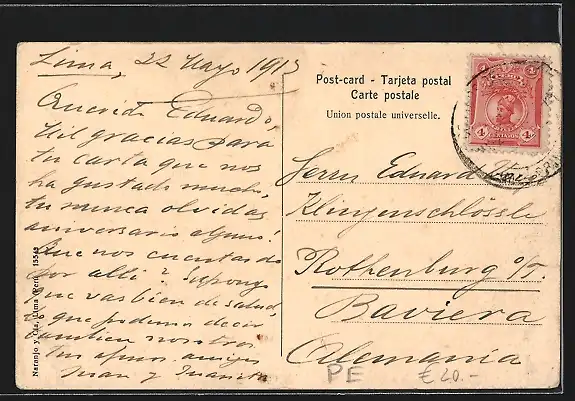 Lima, 22 Mayo 1913
Querido Eduardo:
Mil gracias para
tu carta que nos
ha gustado mucho,
tu nunca olvidas
aniversario alguno!
Que nos cuentas de
por allí? Supongo
que vas bien de salud,
lo que podemos decir
tambien nosotros.
Tus afmos. amigos
Juan y Juanita
Naranjo y Cía., Lima (Perú) 15543
Post-card - Tarjeta postal
Carte postale
Union postale universelle.
4 CENTAVOS 4
Herrn Eduard
Klingenschlössle
Rothenburg o/T.
Baviera
Alemania
PE €20.-